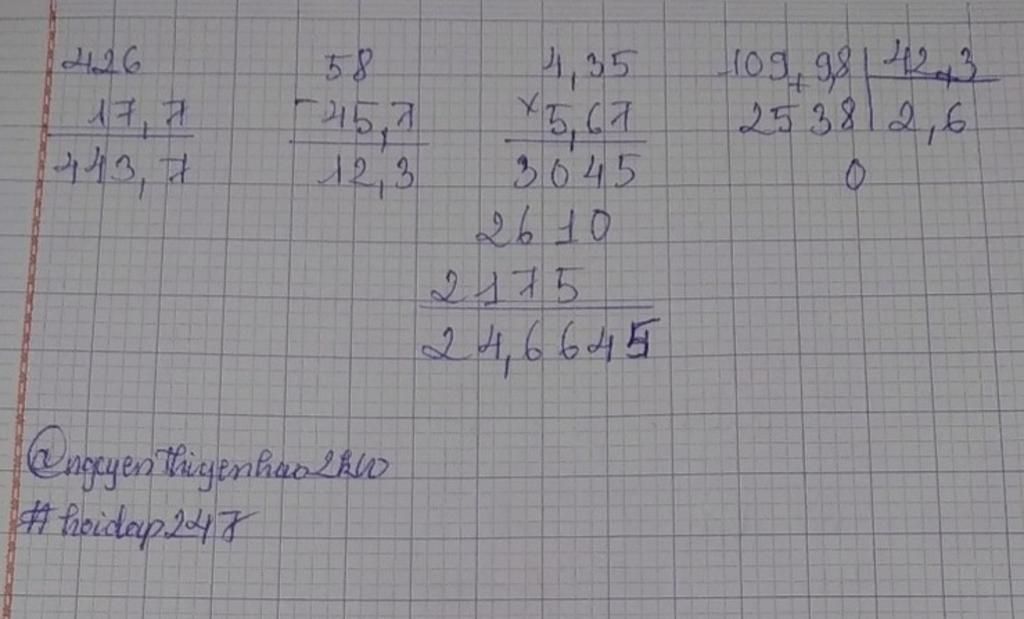 426 58 4,35 109,98 42,3
17,7 - 45,7 × 5,67 2538 2,6
443,7 12,3 3045 0
2610
2175
24,6645
@nguyenthiyenhao2k10
#hoidap247